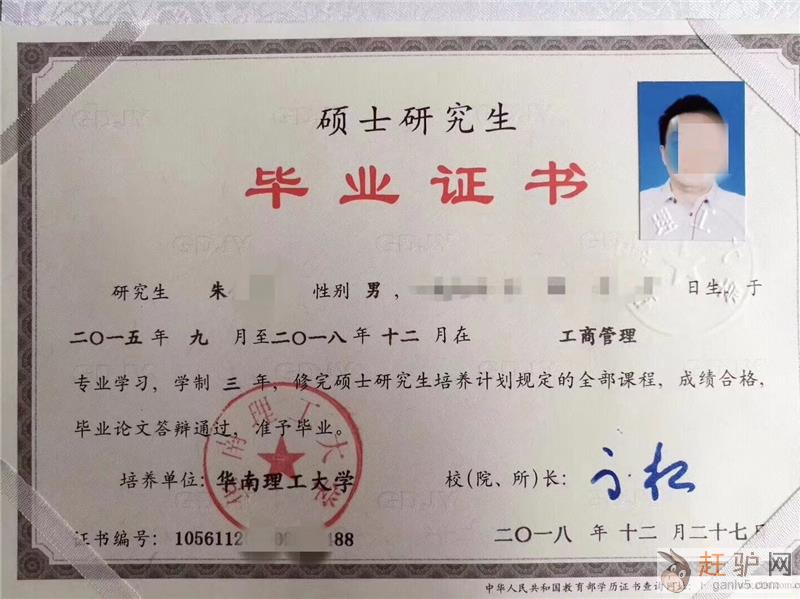 硕士研究生
毕业证书
研究生 朱 性别 男， 日生，于
二〇一五 年 九 月至二〇一八 年 十二 月在 工商管理
专业学习，学制 三 年，修完硕士研究生培养计划规定的全部课程，成绩合格，
毕业论文答辩通过，准予毕业。
华南理工大学
培养单位：华南理工大学 校(院、所)长：
证书编号：1056112 488 二〇一八 年 十二 月 二十七 日
中华人民共和国教育部学历证书查询
赶驴网
ganlv5.com